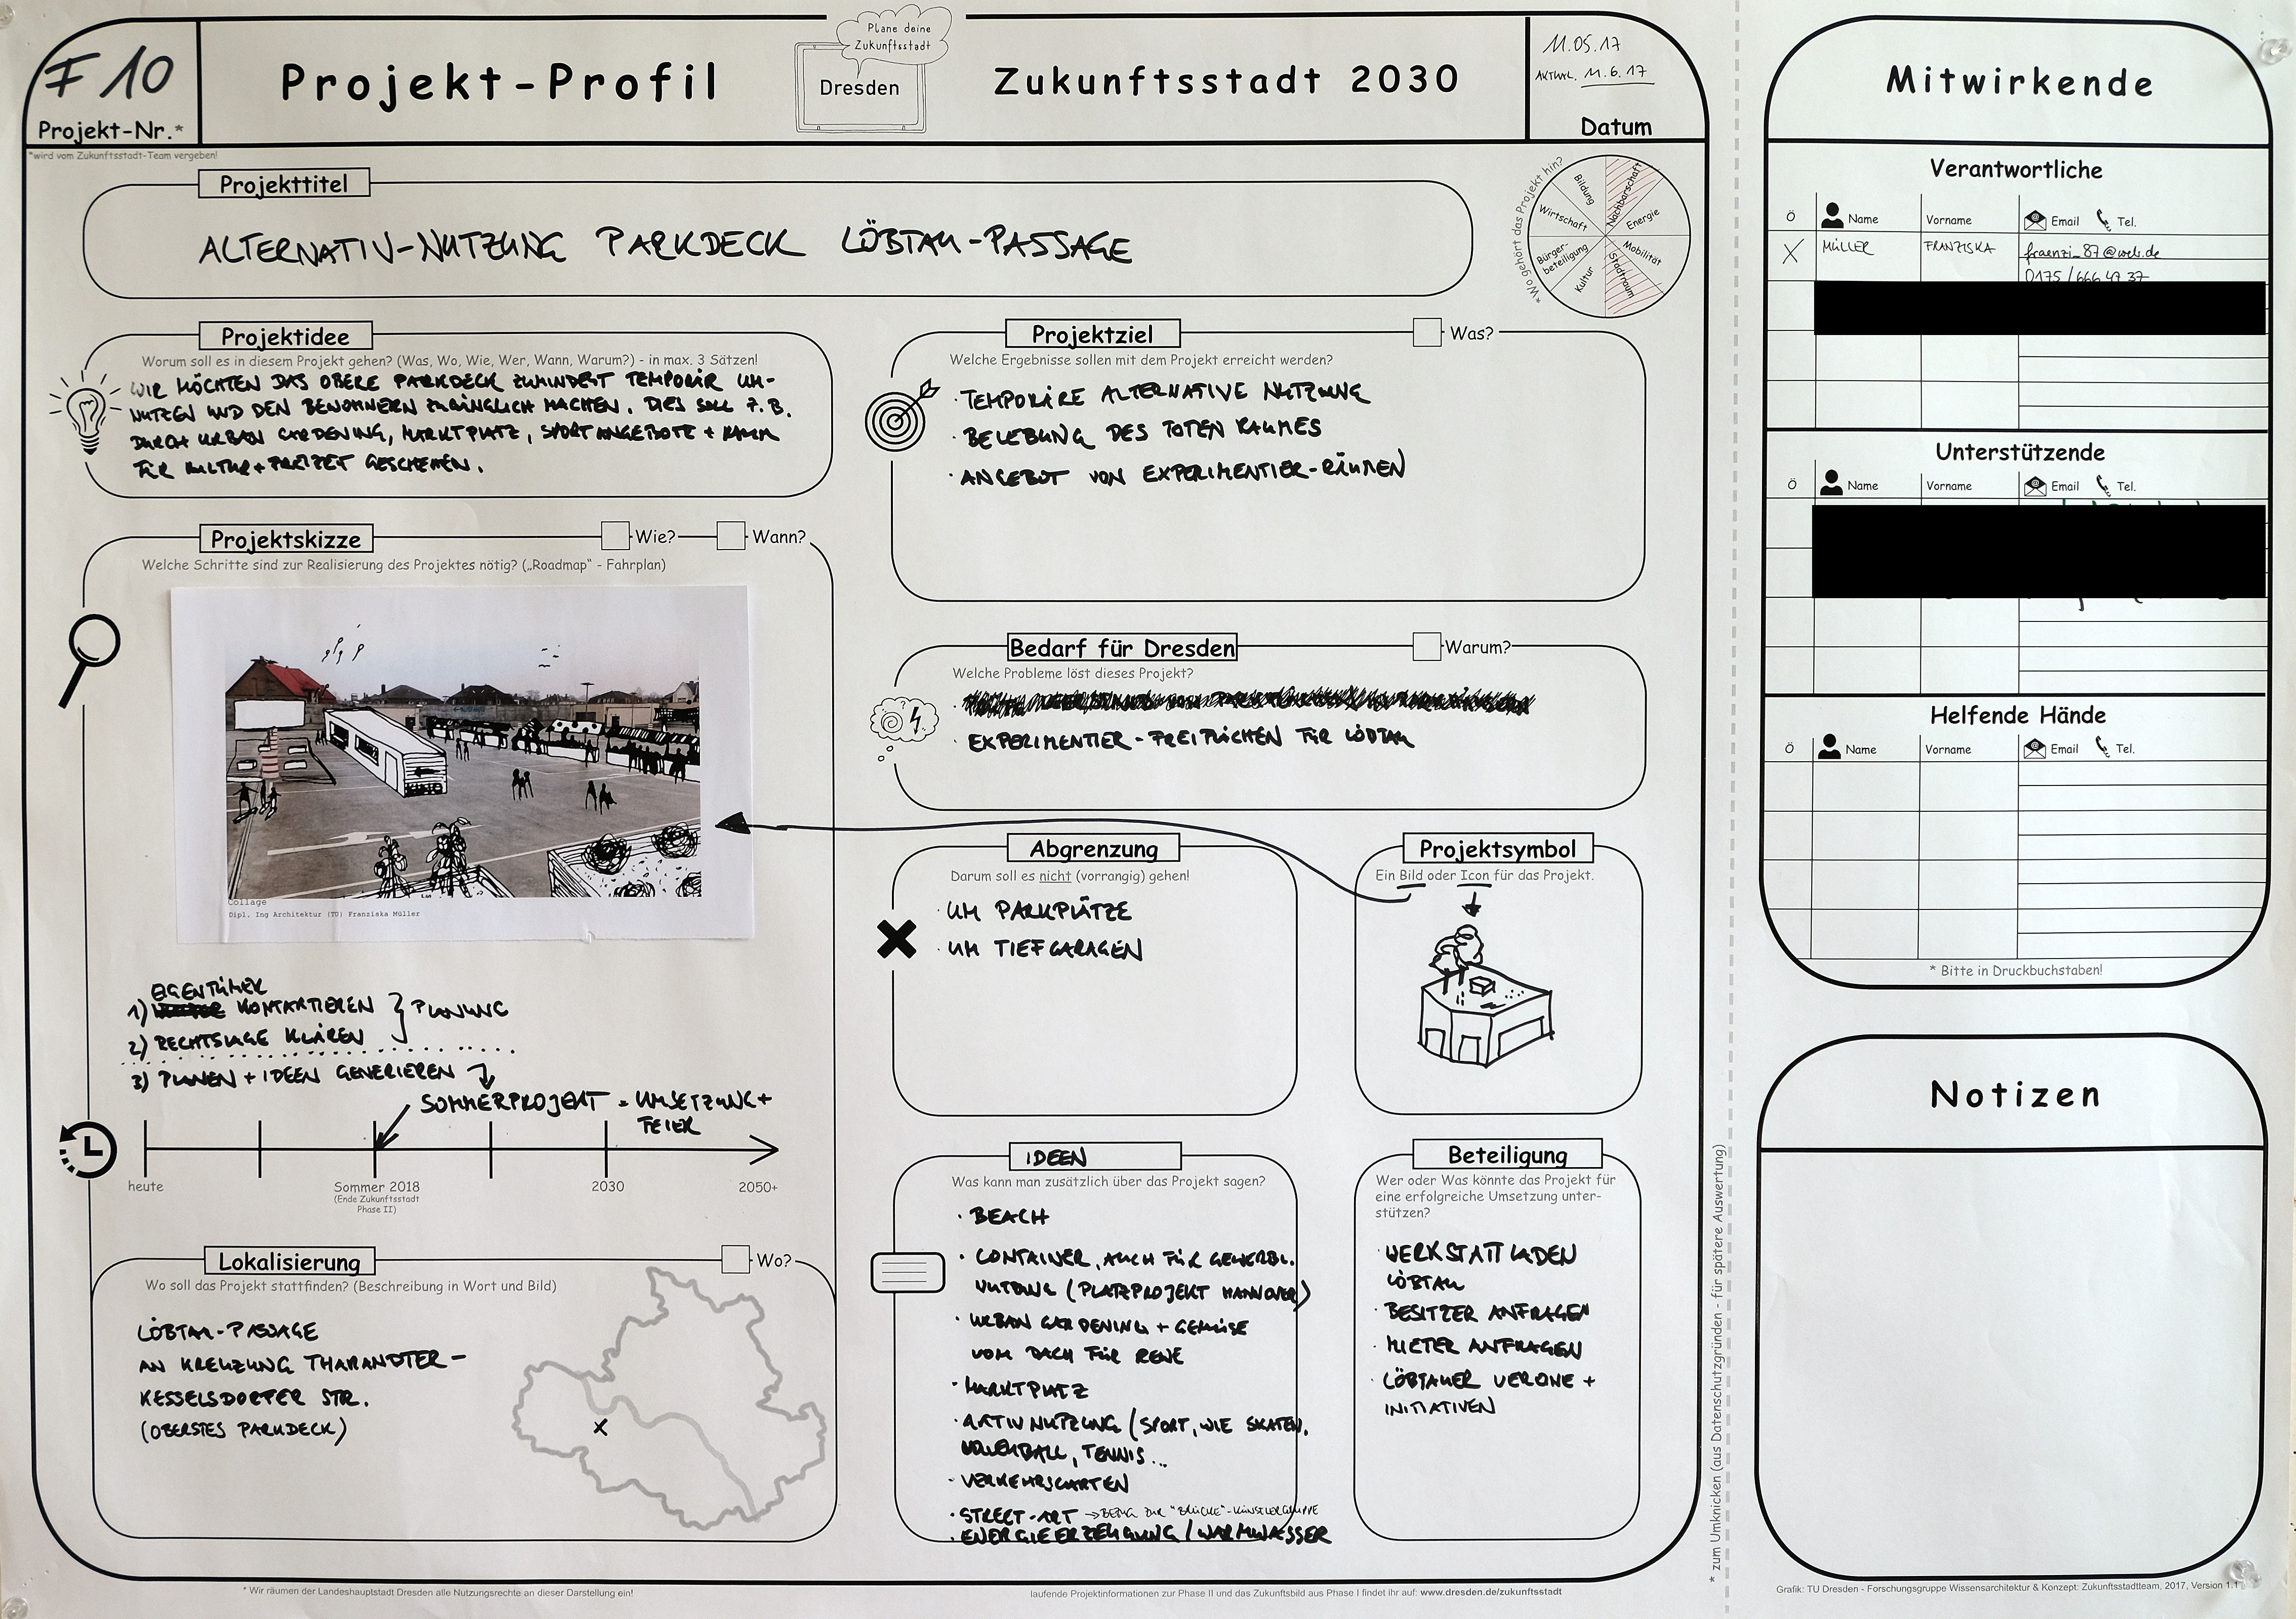 F 10
Projekt-Nr.*
*wird vom Zukunftsstadt-Team vergeben!
Projekt-Profil
Plane deine
Zukunftsstadt
Dresden
Zukunftsstadt 2030
11.05.17
AKTUAL. 11.6.17
Datum
Projekttitel
ALTERNATIV-NUTZUNG PARKDECK LÖBTAU-PASSAGE
*Wo gehört das Projekt hin?
Bildung
Nachbarschaft
Wirtschaft
Energie
Bürger-
beteiligung
Mobilität
Kultur
Stadtraum
Projektidee
Worum soll es in diesem Projekt gehen? (Was, Wo, Wie, Wer, Wann, Warum?) - in max. 3 Sätzen!
WIR MÖCHTEN DAS OBERE PARKDECK ZUMINDEST TEMPORÄR UM-
NUTZEN UND DEN BEWOHNERN ZUGÄNGLICH MACHEN. DIES SOLL Z.B.
DURCH URBAN GARDENING, MARKTPLATZ, SPORTANGEBOTE + RAUM
FÜR KULTUR + FREIZEIT GESCHEHEN.
Projektziel
Was?
Welche Ergebnisse sollen mit dem Projekt erreicht werden?
· TEMPORÄRE ALTERNATIVE NUTZUNG
· BELEBUNG DES TOTEN RAUMES
· ANGEBOT VON EXPERIMENTIER-RÄUMEN
Projektskizze
Wie?
Wann?
Welche Schritte sind zur Realisierung des Projektes nötig? („Roadmap“ - Fahrplan)
Collage
Dipl. Ing Architektur (TU) Franziska Müller
EIGENTÜMER
1) KONTAKTIEREN } PLANUNG
2) RECHTSLAGE KLÄREN
3) PLANEN + IDEEN GENERIEREN
SOMMERPROJEKT = UMSETZUNG +
FEIER
heute
Sommer 2018
(Ende Zukunftsstadt
Phase II)
2030
2050+
Bedarf für Dresden
Warum?
Welche Probleme löst dieses Projekt?
· EXPERIMENTIER-FREIFLÄCHEN FÜR LÖBTAU
Abgrenzung
Darum soll es nicht (vorrangig) gehen!
· UM PARKPLÄTZE
· UM TIEFGARAGEN
Projektsymbol
Ein Bild oder Icon für das Projekt.
Lokalisierung
Wo?
Wo soll das Projekt stattfinden? (Beschreibung in Wort und Bild)
LÖBTAU-PASSAGE
AN KREUZUNG THARANDTER-
KESSELSDORFER STR.
(OBERSTES PARKDECK)
X
IDEEN
Was kann man zusätzlich über das Projekt sagen?
· BEACH
· CONTAINER, AUCH FÜR GEWERBL.
NUTUNG (PLATZPROJEKT HANNOVER)
· URBAN GARDENING + GEMÜSE
VOM DACH FÜR REWE
· MARKTPLATZ
· AKTIV NUTZUNG (SPORT, WIE SKATEN,
VOLLEYBALL, TENNIS...
· VERKEHRSGARTEN
· STREET-ART → BEZUG ZUR "BRÜCKE"-KÜNSTLERGRUPPE
· ENERGIEERZEUGUNG / WARMWASSER
Beteiligung
Wer oder Was könnte das Projekt für
eine erfolgreiche Umsetzung unter-
stützen?
· WERKSTATTLADEN
LÖBTAU
· BESITZER ANFRAGEN
· MIETER ANFRAGEN
· LÖBTAUER VEREINE +
INITIATIVEN
* Wir räumen der Landeshauptstadt Dresden alle Nutzungsrechte an dieser Darstellung ein!
laufende Projektinformationen zur Phase II und das Zukunftsbild aus Phase I findet ihr auf: www.dresden.de/zukunftsstadt
* zum Umknicken (aus Datenschutzgründen - für spätere Auswertung)
Mitwirkende
Verantwortliche
Ö Name Vorname Email Tel.
X MÜLLER FRANZISKA fraenzi_87@web.de
0175/666 47 37
Unterstützende
Ö Name Vorname Email Tel.
Helfende Hände
Ö Name Vorname Email Tel.
* Bitte in Druckbuchstaben!
Notizen
Grafik: TU Dresden - Forschungsgruppe Wissensarchitektur & Konzept: Zukunftsstadtteam, 2017, Version 1.1